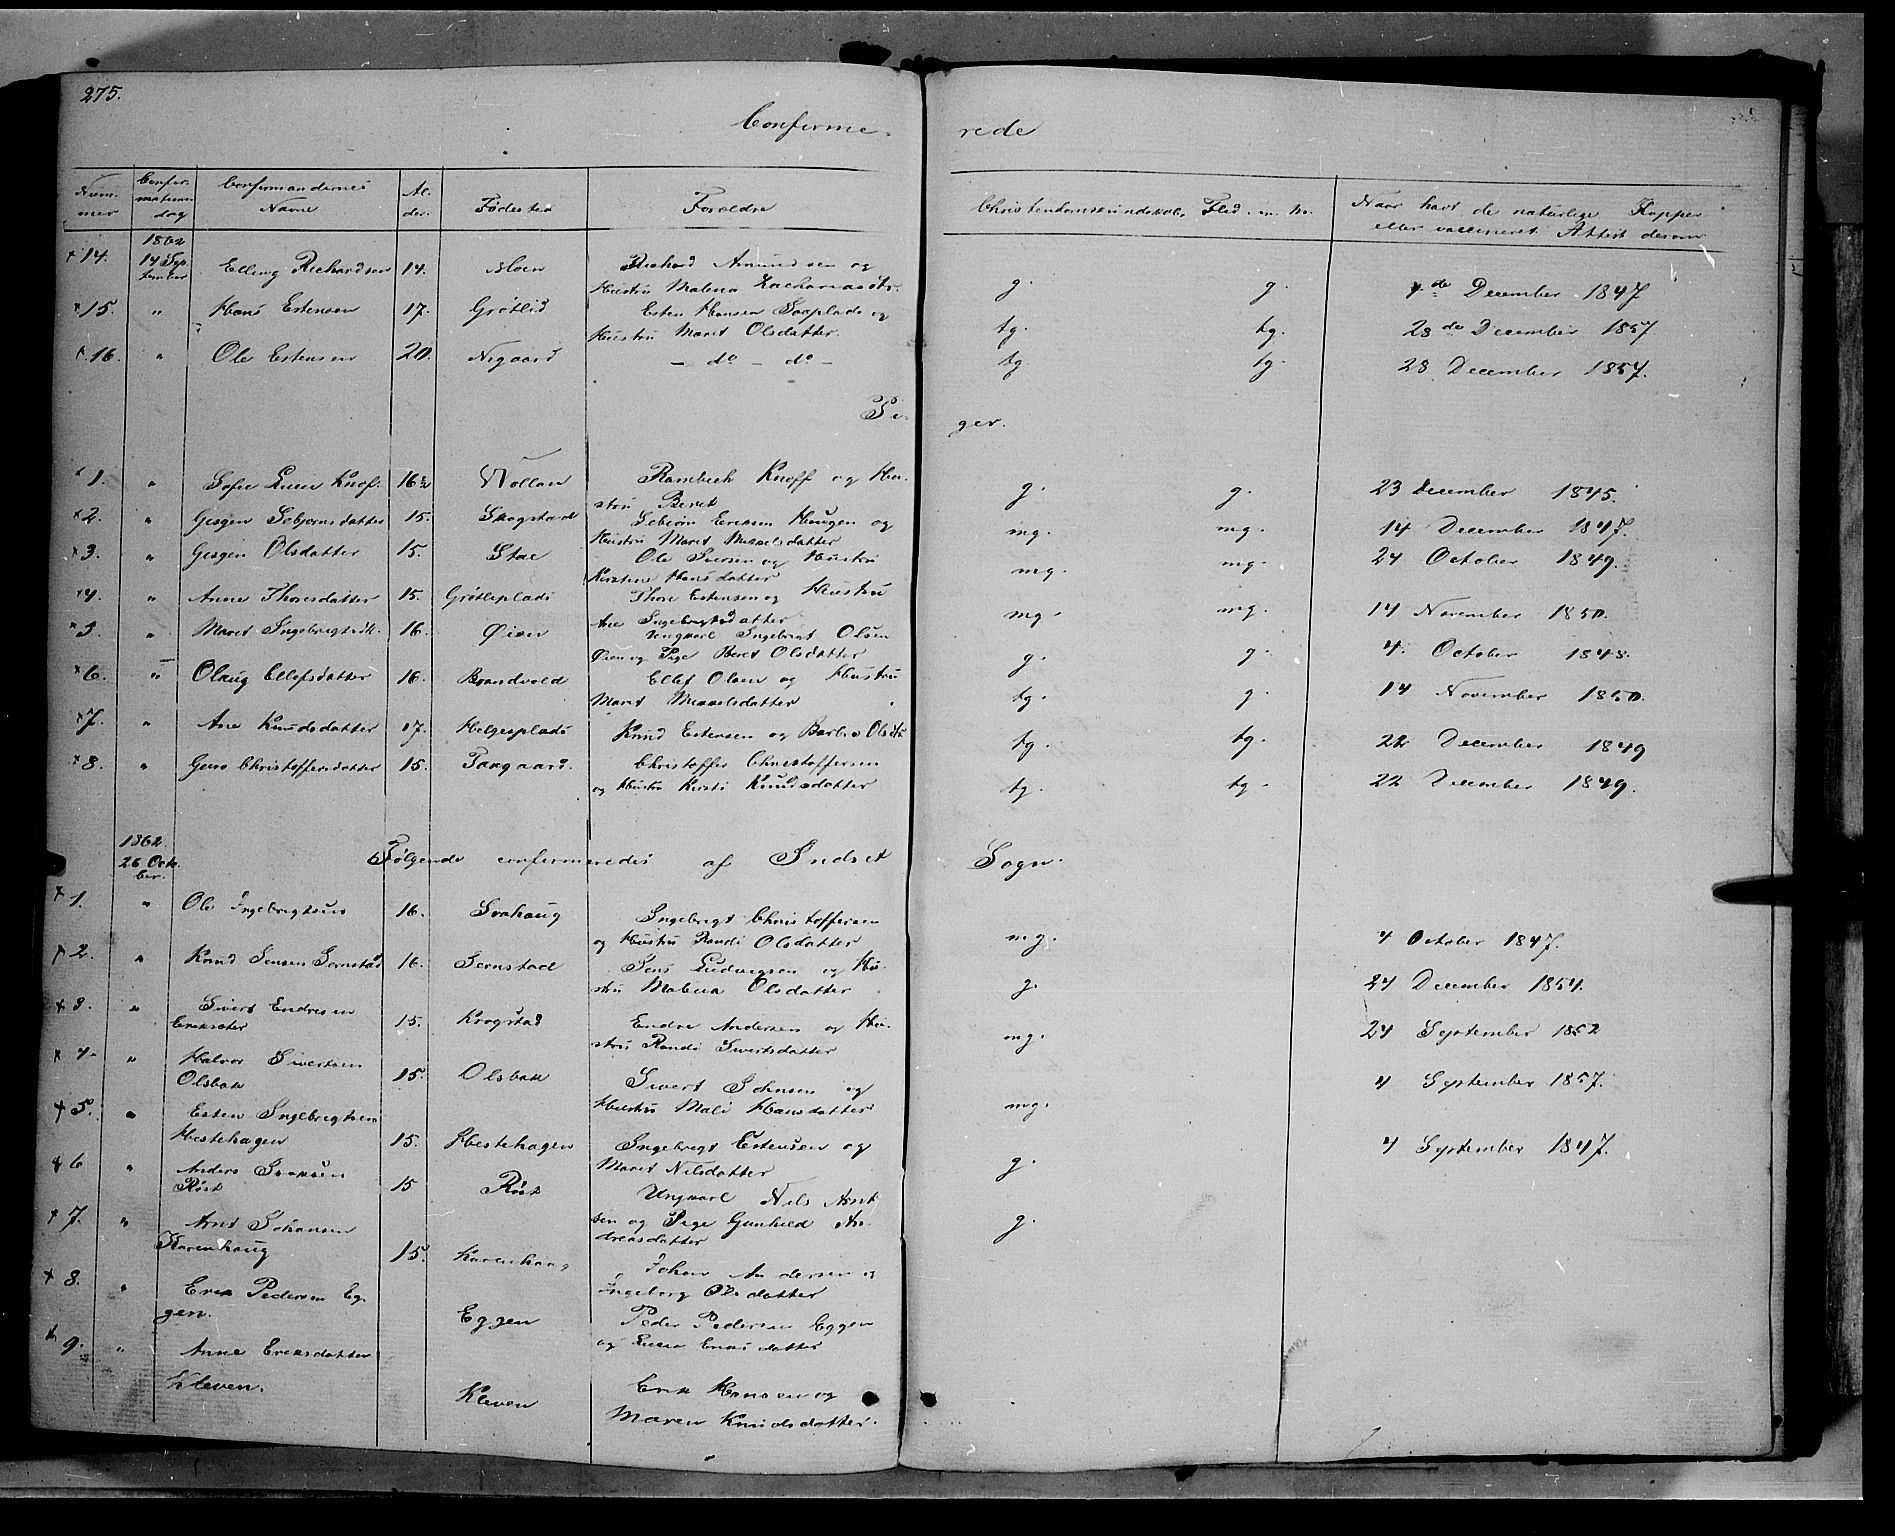 275.
Confirme- rede
Num-
mer
Confir-
mations
dag
Confirmandernes
Navne
Al-
der.
Fødested
Foreldre
Christendomskundskab, Flid. m. M.
Naar havt de naturlige Kopper
eller vaccineret. Attest derom
× 14. 1862 14 Sep. tember Elling Richardsen 14. Moen Richard Amundsen og
Hustru Malena Zachariasdtr. g. g. 4de December 1847
× 15. " Hans Estensen 17. Grøtlid Esten Hansen og
Hustru Maret Olsdatter. tg. tg. 28de December 1857.
× 16. " Ole Estensen 20. Negaard – do – do – tg. tg. 28 December 1857.
Pi- ger.
× 1. " Sofie Knof. 16½ Vollan Rambech Knoff og Hu-
stru Beret g. g. 23 December 1845.
× 2. " Gesgen Sebjørnsdatter 15. Skogstad Sebjørn Eriksen Haugen og
Hustru Maret Mikkelsdatter mg. mg. 14 December 1847.
× 3. " Gesgen Olsdatter 15. Stae Ole Iversen og Hustru
Kirstine Hansdatter mg. mg. 24 October 1849.
× 4. " Anne Thoresdatter 15. Grøtliplads Thore Estensen og Hustru
Ane Ingebrigtsdatter mg. mg. 14 November 1850.
× 5. " Maret Ingebrigtsdtr. 16. Øien Ungkarl Ingebrigt Olsen
Øien og Pige Beret Olsdatter g. g. 4. October 1848.
× 6. " Olaug Ellefsdatter 16. Brandvold Ellef Olsen og Hustru
Maret Mikkelsdatter tg. g. 14 November 1850.
× 7. " Ane Knudsdatter 17. Helgesplads Knud Estensen og Barbro Olsdtr tg. tg. 22 December 1849
× 8. " Guro Christoffersdatter 15. Taagaard. Christoffer Christoffersen
og Hustru Kirsti Knudsdatter tg. tg. 22 December 1849.
1862.
26 Octo-
ber. Følgende confirmeredes af Indset Sogn.
× 1. " Ole Ingebrigtsen 16. Svahaug Ingebrigt Christoffersen
og Hustru Randi Olsdatter mg. 4 October 1847.
× 2. " Knud Jensen Gernstad 16. Gernstad Jens Ludvigsen og Hu-
stru Malena Olsdatter g. 24 December 1854.
× 3. " Sivert Endresen
Erikseter 15. Krogstad Endre Andersen og Hu-
stru Randi Sivertsdatter mg. 24 September 1852
× 4. " Halvor Sivertsen
Olsbak 15. Olsbak Sivert Johnsen og
Hustru Mali Hansdatter mg. 4 September 1857.
× 5. " Esten Ingebrigtsen
Hestehagen 15. Hestehagen Ingebrigt Estensen og
Maret Nilsdatter g. 4 September 1847.
× 6 " Anders Isaksen
Røst 15 Røst Ungkarl Nils Arnt
sen og Pige Gunhild An-
dreasdatter g.
× 7. " Arnt Johansen
Karenhaug 15. Karenhaug Johan Andersen og
Ingeborg Olsdatter
× 8. " Erik Pedersen Eg-
gen. Eggen Peder Pedersen Eggen
og Eriksdatter
× 9. " Anne Eriksdatter
Kleven. Kleven Erik Hansen og
Maren Knudsdatter.